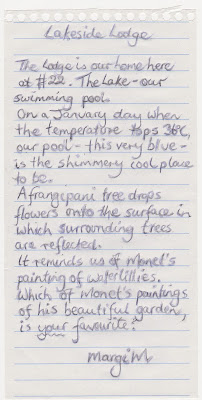 Lakeside Lodge
The Lodge is our home here
at #22. The Lake - our
swimming pool.
On a January day when
the temperature tops 36°C,
our pool - this very blue -
is the shimmery cool place
to be.
A frangipani tree drops
flowers onto the surface in
which surrounding trees
are reflected.
It reminds us of Monet's
painting of waterlillies.
Which of Monet's paintings
of his beautiful garden,
is your favourite?
Margi M